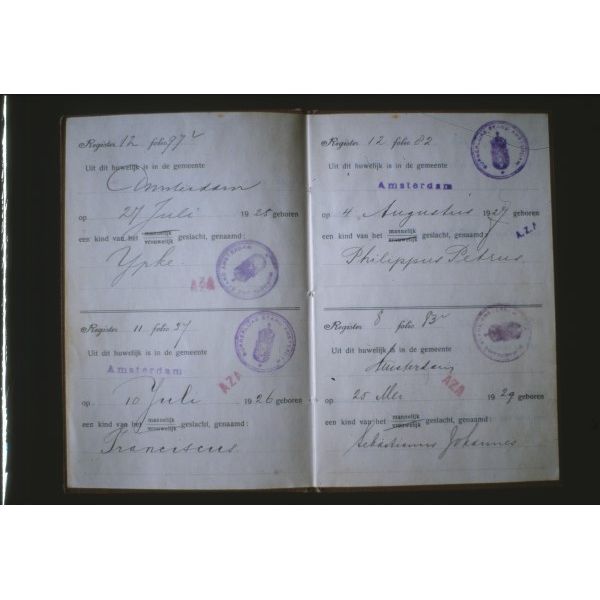 Register 12 folio 97v
Uit dit huwelijk is in de gemeente
Amsterdam
op 27 Juli 1925 geboren
een kind van het mannelijk
vrouwelijk geslacht, genaamd:
Ypke.
AZA
Register 11 folio 37
Uit dit huwelijk is in de gemeente
Amsterdam
op 10 Juli 1926 geboren
AZA
een kind van het mannelijk
vrouwelijk geslacht, genaamd:
Franciscus.
Register 12 folio 82
Uit dit huwelijk is in de gemeente
Amsterdam
op 4 Augustus 1927 geboren
een kind van het mannelijk
vrouwelijk geslacht, genaamd:
A.Z.A
Philippus Petrus.
Register 8 folio 93v
Uit dit huwelijk is in de gemeente
Amsterdam
AZA
op 25 Mei 1929 geboren
een kind van het mannelijk
vrouwelijk geslacht, genaamd:
Sebastianus Johannes